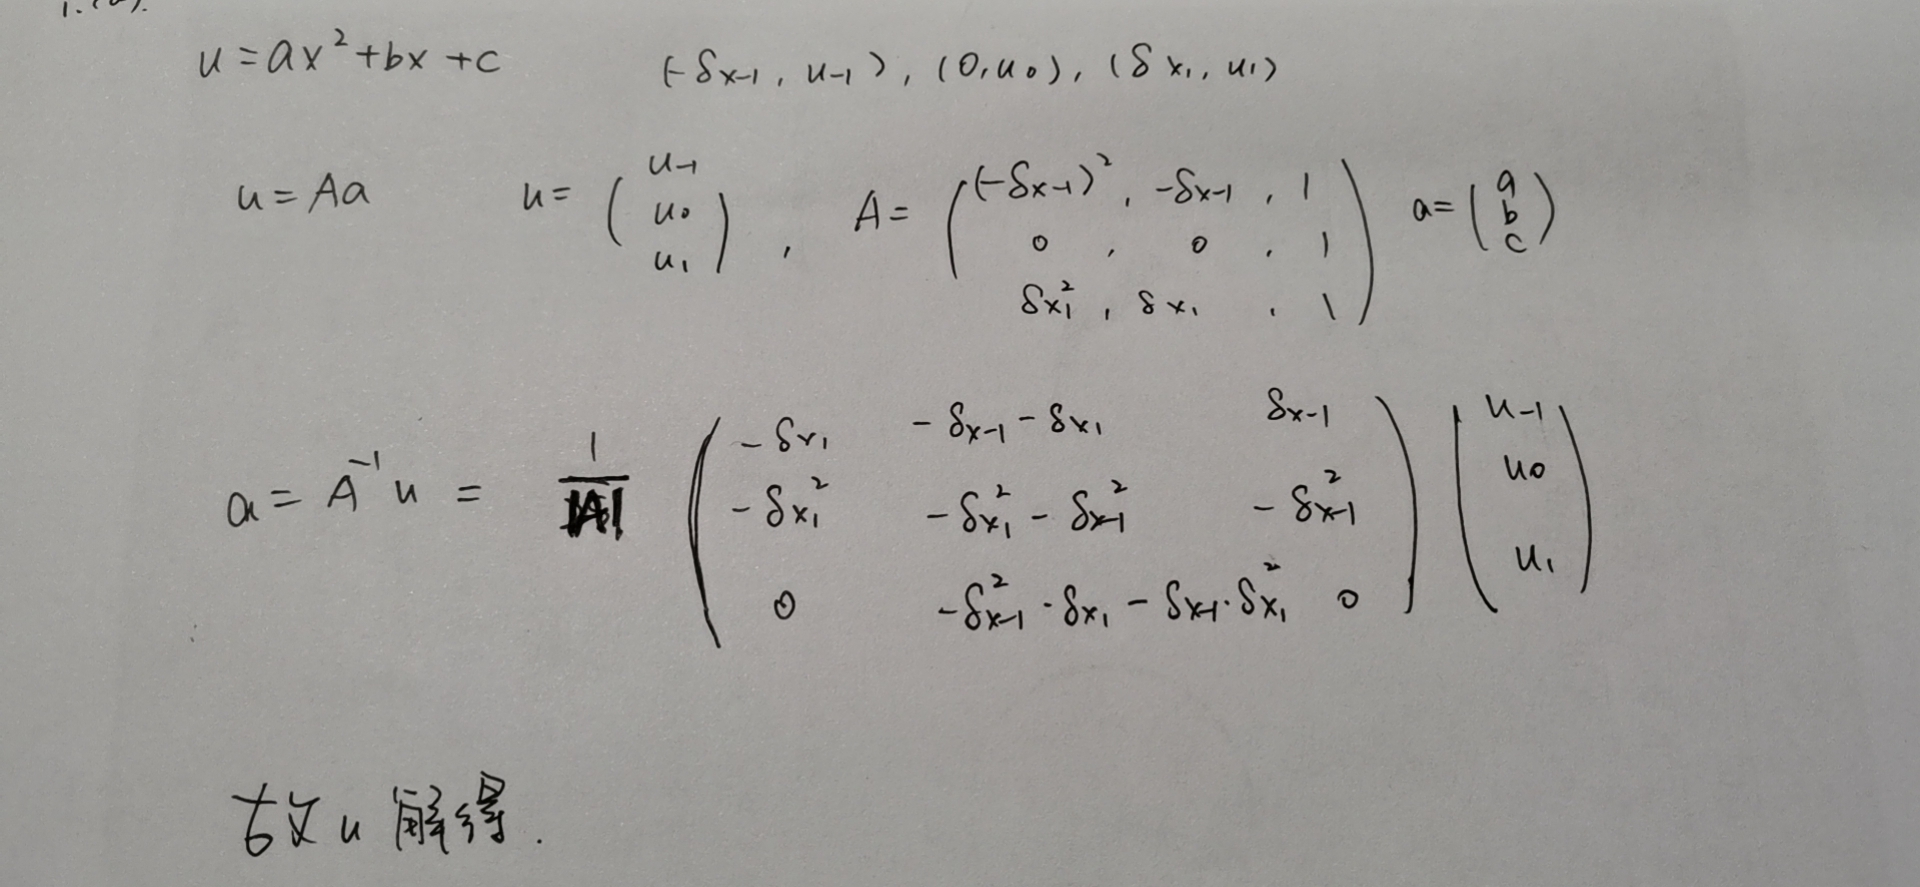 u = ax² + bx + c (-δx₋₁, u₋₁), (0, u₀), (δx₁, u₁)
u = Aa u = ( u₋₁ u₀ u₁ ) , A = ( (-δx₋₁)² , -δx₋₁ , 1 a = ( a b c )
0 , 0 , 1
δx₁² , δx₁ , 1 )
a = A⁻¹ u = 1/|A| ( -δx₁ -δx₋₁ - δx₁ δx₋₁ ) ( u₋₁
-δx₁² -δx₁² - δx₋₁² -δx₋₁² u₀
0 -δx₋₁² · δx₁ - δx₋₁ · δx₁² 0 u₁ )
故 u 解得.